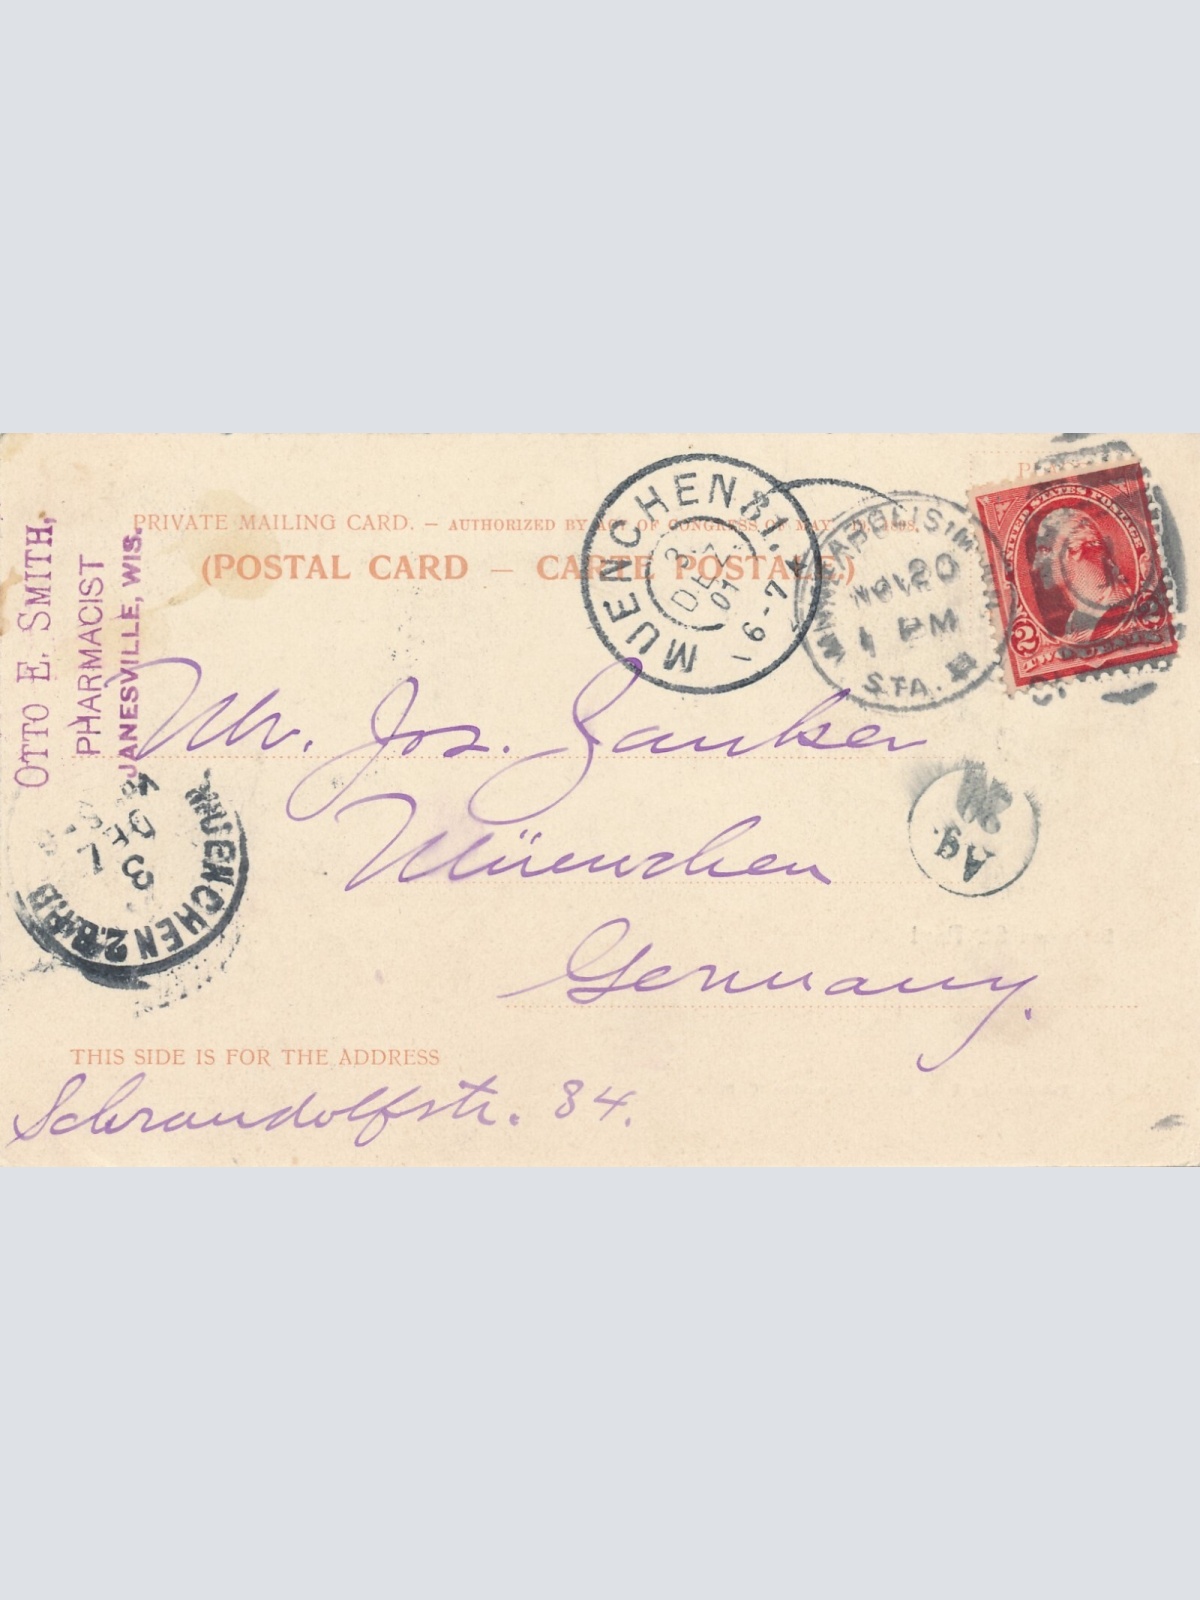 OTTO E. SMITH,
PHARMACIST
JANESVILLE, WIS.
PRIVATE MAILING CARD. – AUTHORIZED BY ACT OF CONGRESS OF MAY 19, 1898.
(POSTAL CARD – CARTE POSTALE)
MUENCHEN 31.
3.
DEZ
01
6-7
MINNEAPOLIS, MINN
NOV 20
1 PM
STA.
UNITED STATES POSTAGE
2 2
TWO
Mr. Jos. Zauker
Müenchen
Germany.
MUENCHEN 2. B.P.
3
Ag.
THIS SIDE IS FOR THE ADDRESS
Schraudolfstr. 34.